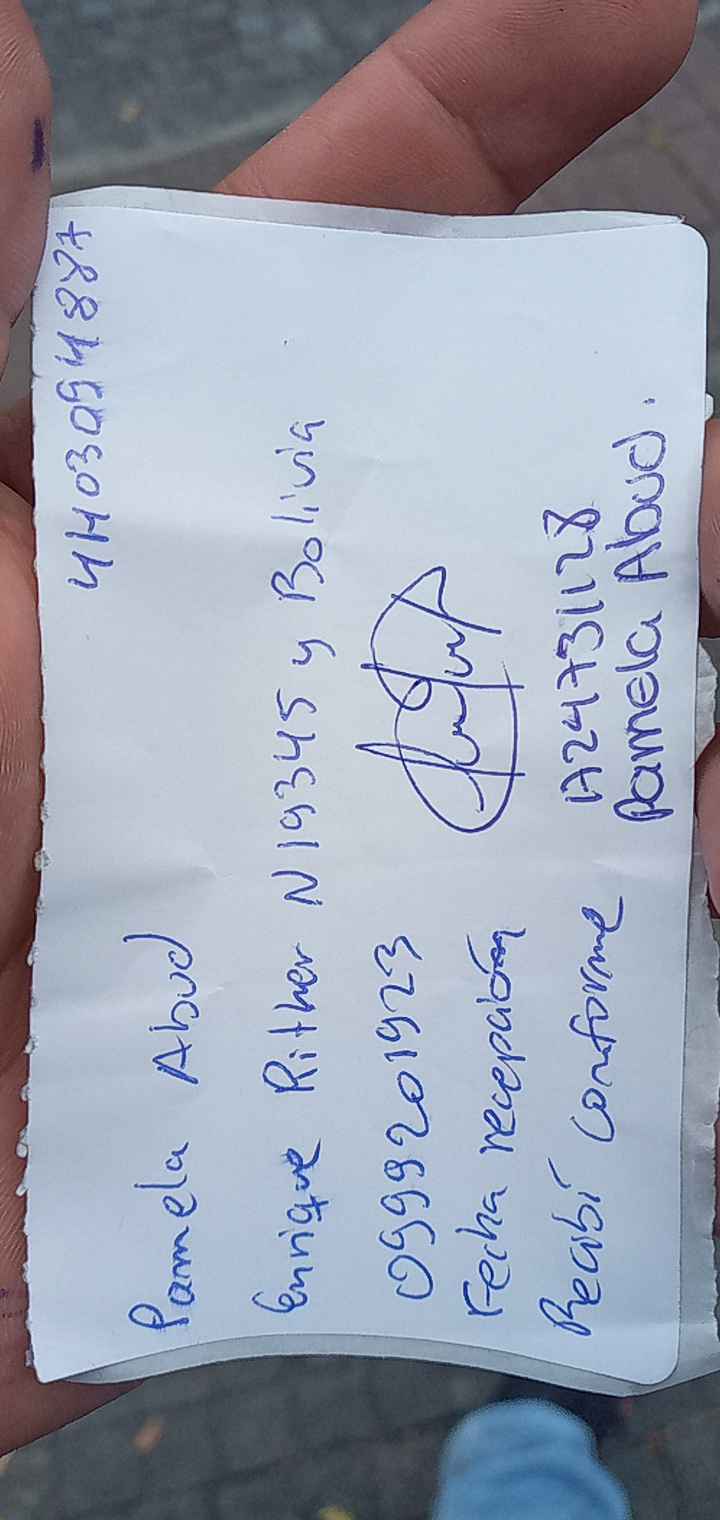 4403094887
Pamela Abud
Enrique Rither N19345 y Bolivia
0999201923
Fecha recepción
Recibí conforme
A24731128
Pamela Abud.